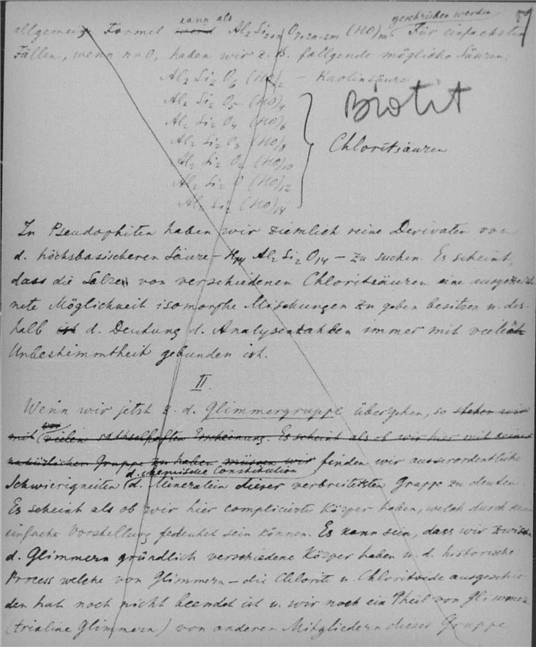 57
kann als geschrieben werden
allgemeine Formel Al₂ Si₂₊ₙ (HO) Für einfachsten
Fällen, wenn n=0, haben wir z. B. folgende mögliche Säuren:
Al₂ Si₂ O₆ (HO)₂ – Kaolinsäure
Al₂ Si₂ O₅ (HO)₄
Al₂ Si₂ O₄ (HO)₆
Al₂ Si₂ O₃ (HO)₈
Al₂ Si₂ O₂ (HO)₁₀
Al₂ Si₂ O (HO)₁₂
Al₂ Si₂ (HO)₁₄
Biotit
Chloritsäuren
In Pseudophiten haben wir ziemlich reine Derivaten von
d. höchsbasischeren Säure – H₁₄ Al₂ Si₂ O₁₄ – zu suchen. Es scheint,
dass die Salzen von verschiedenen Chloritsäuren eine ausgezeich
nete Möglichkeit isomorphe Mischungen zu geben besitzen u. des-
halb ist d. Deutung d. Analysezahlen immer mit
Unbestimmtheit gebunden ist.
II.
Wenn wir jetzt z. d. Glimmergruppe übergehen, so stehen wir
vor
mit vielen rathselhaften Erscheinung. Es scheint als ob wir hier mit keiner
natürlichen Gruppe zu haben müssen wir finden wir ausserordentliche
d. chemische Constitution
Schwierigkeiten d. Mineralein dieser verbreitetsten Gruppe zu deuten.
Es scheint als ob wir hier complicirte Körper haben, welch durch
einfache Vorstellung gedeutet sein können. Es kann sein, dass wir zwischen
d. Glimmern gründlich verschiedene Körper haben u. d. historische
Process welche von Glimmern – die Chlorit u. Chloritoide ausgeschie-
den hat noch nicht beendet ist u. wir noch ein Theil von Glimmern
Glimmern) von anderen Mitgliedern dieser Gruppe